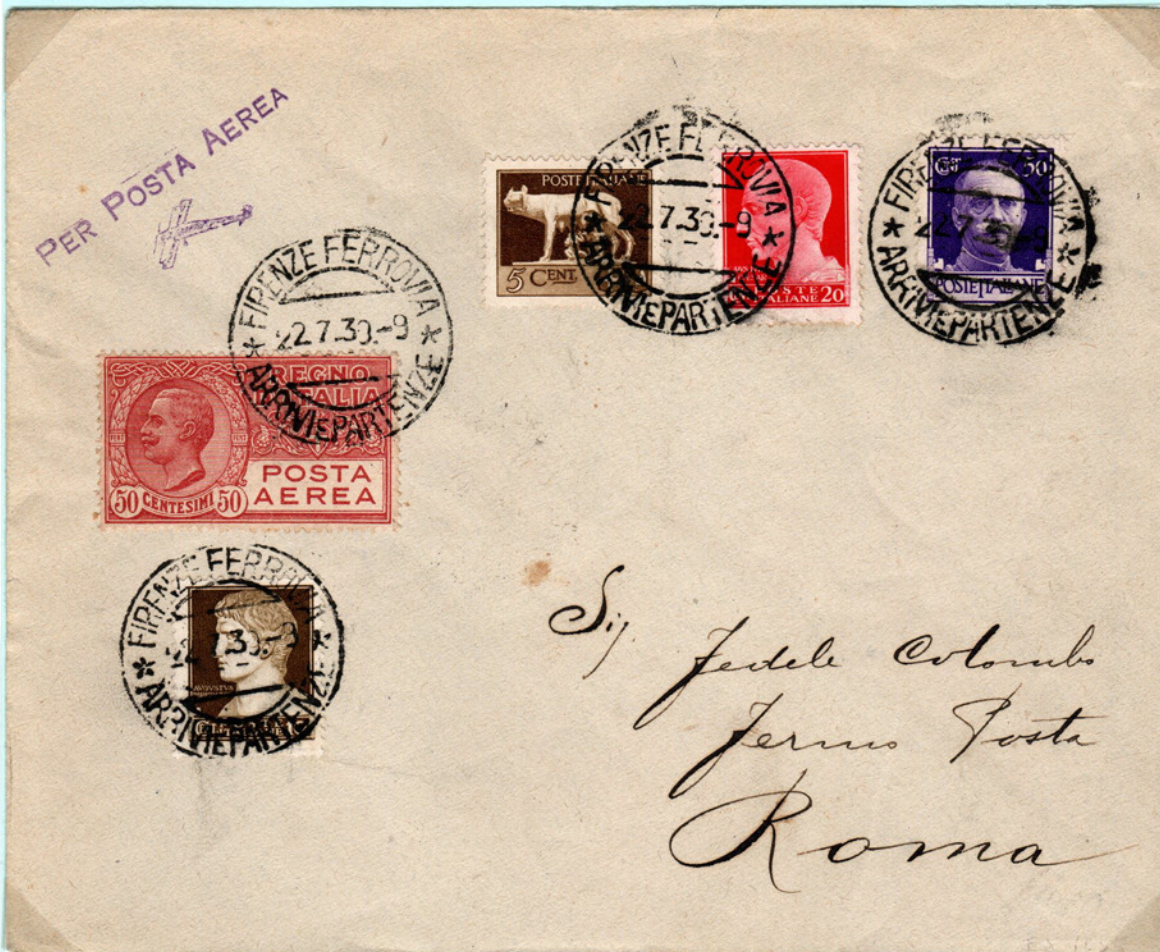 PER POSTA AEREA
FIRENZE FERROVIA
22.7.30.-9
ARRIVI E PARTENZE
POSTE ITALIANE
5 CENT.
FIRENZE FERROVIA
22.7.30.-9
ARRIVI E PARTENZE
POSTE
ITALIANE 20
FIRENZE FERROVIA
22.7.30.-9
ARRIVI E PARTENZE
CENT 50
POSTE ITALIANE
REGNO
D'ITALIA
POSTA
AEREA
50 CENTESIMI 50
FIRENZE FERROVIA
ARRIVI E PARTENZE
AVGVSTVS
Sig Fedele Colombo
Fermo Posta
Roma